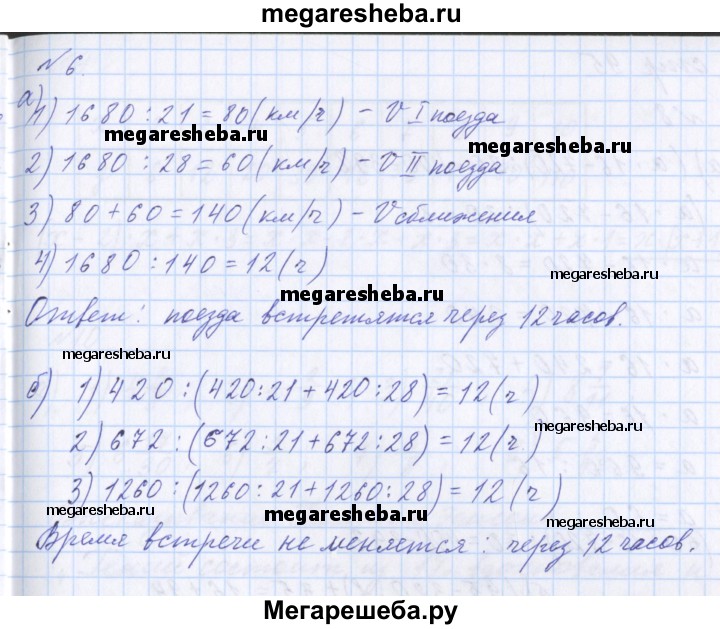 megaresheba.ru
№ 6.
а)
1) 1680 : 21 = 80 (км/ч) – V I поезда
megaresheba.ru
megaresheba.ru
2) 1680 : 28 = 60 (км/ч) – V II поезда
3) 80 + 60 = 140 (км/ч) – V сближения
4) 1680 : 140 = 12 (ч)
megaresheba.ru
megaresheba.ru
Ответ: поезда встретятся через 12 часов.
megaresheba.ru
б) 1) 420 : (420 : 21 + 420 : 28) = 12 (ч)
megaresheba.ru
2) 672 : (672 : 21 + 672 : 28) = 12 (ч)
3) 1260 : (1260 : 21 + 1260 : 28) = 12 (ч)
megaresheba.ru
megaresheba.ru
megaresheba.ru
Время встречи не меняется : через 12 часов.
megaresheba.ru
Мегарешеба.ру